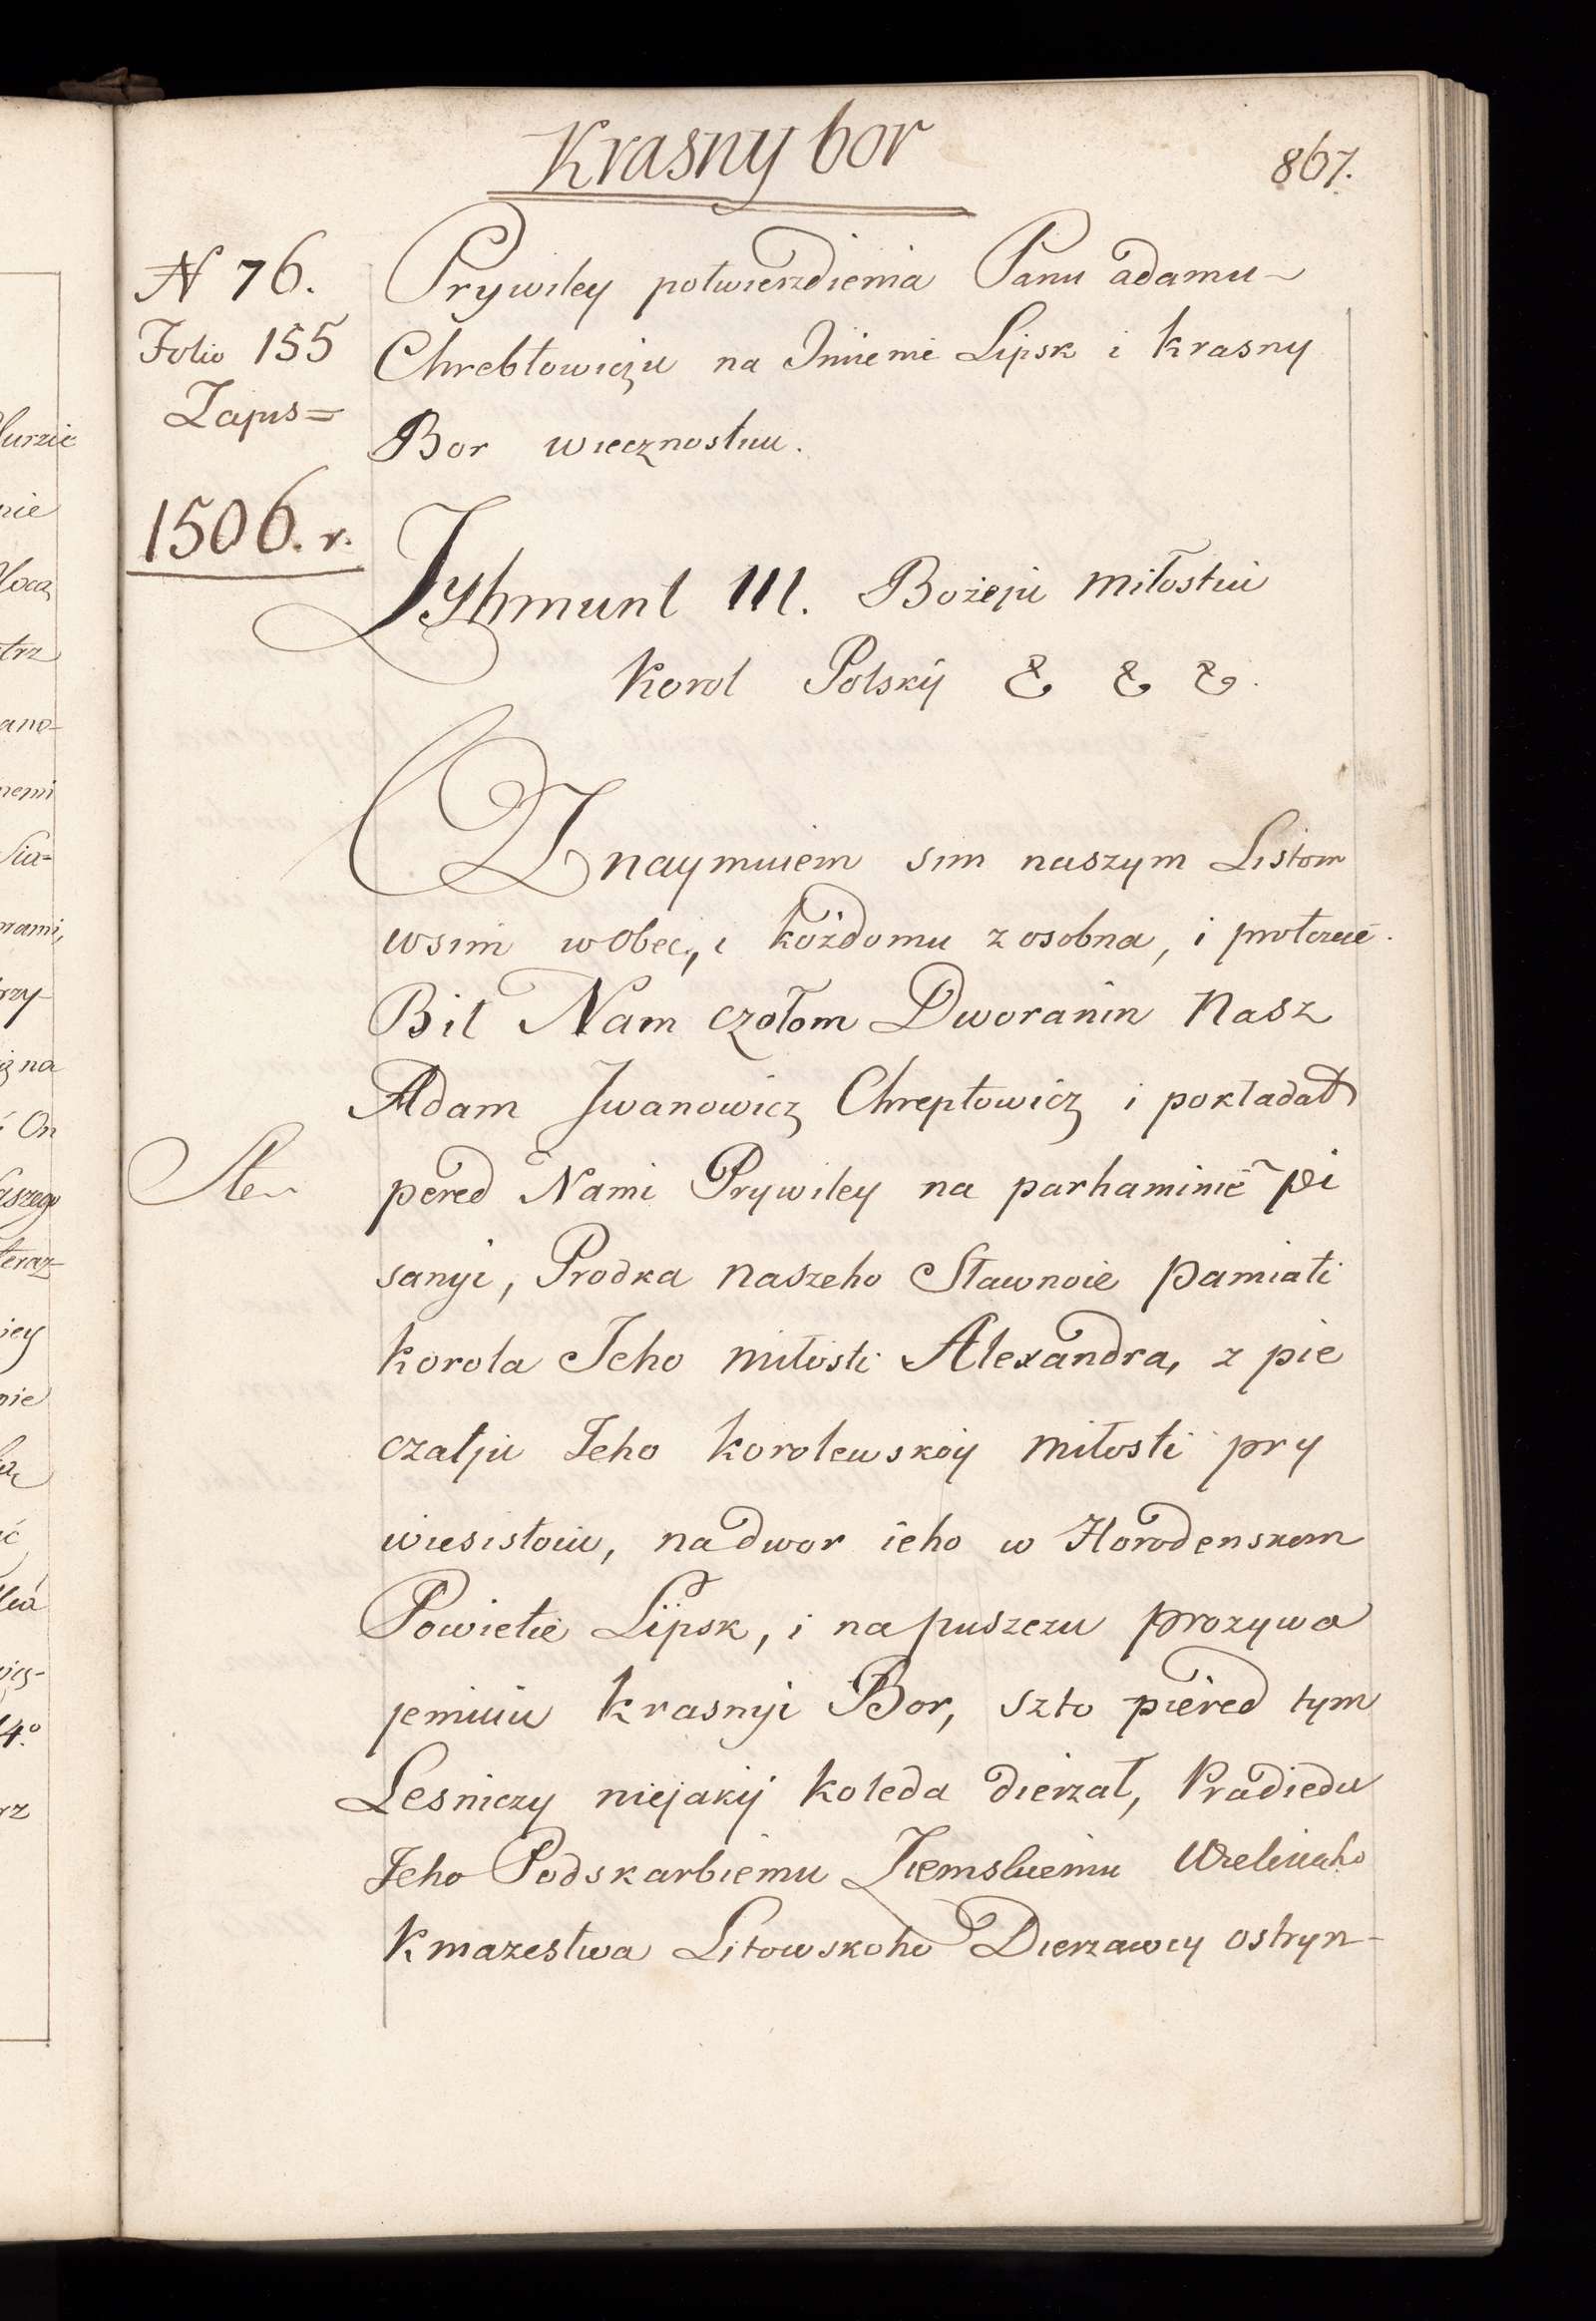 Krasny bor
867.
N 76.
Folio 155
Zapis=
1506. r.
Prywiley potwierzdienia Panu adamu
Chrebtowiczu na Imienie Lipsk i Krasny
Bor wiecznostiu.
Zyhmunt III. Bożeju miłostiu
Korol Polskij & & &.
Oznaymuiem sim naszym Listom
wsim wobec, i kożdomu z osobna, i
Bil Nam czołom Dworanin Nasz
Adam Iwanowicz Chreptowicz i pokładał
pered Nami Prywiley na parhaminie pi
sanyi, Prodka naszeho Sławnoie pamiati
korola Jeho miłosti Alexandra, z pie
czatju Jeho korolewskoy miłosti pry
wiesistoiu, na dwor ieho w Horodenskom
Powietie Lipsk, i na puszczu prozywa
jemuiu Krasnyi Bor, szto piered tym
Lesniczy niejakij Koleda dierzał, Pradiedu
Jeho Podskarbiemu Ziemskiemu Welikaho
Kniazestwa Litowskoho Dierzawcy ostryn-